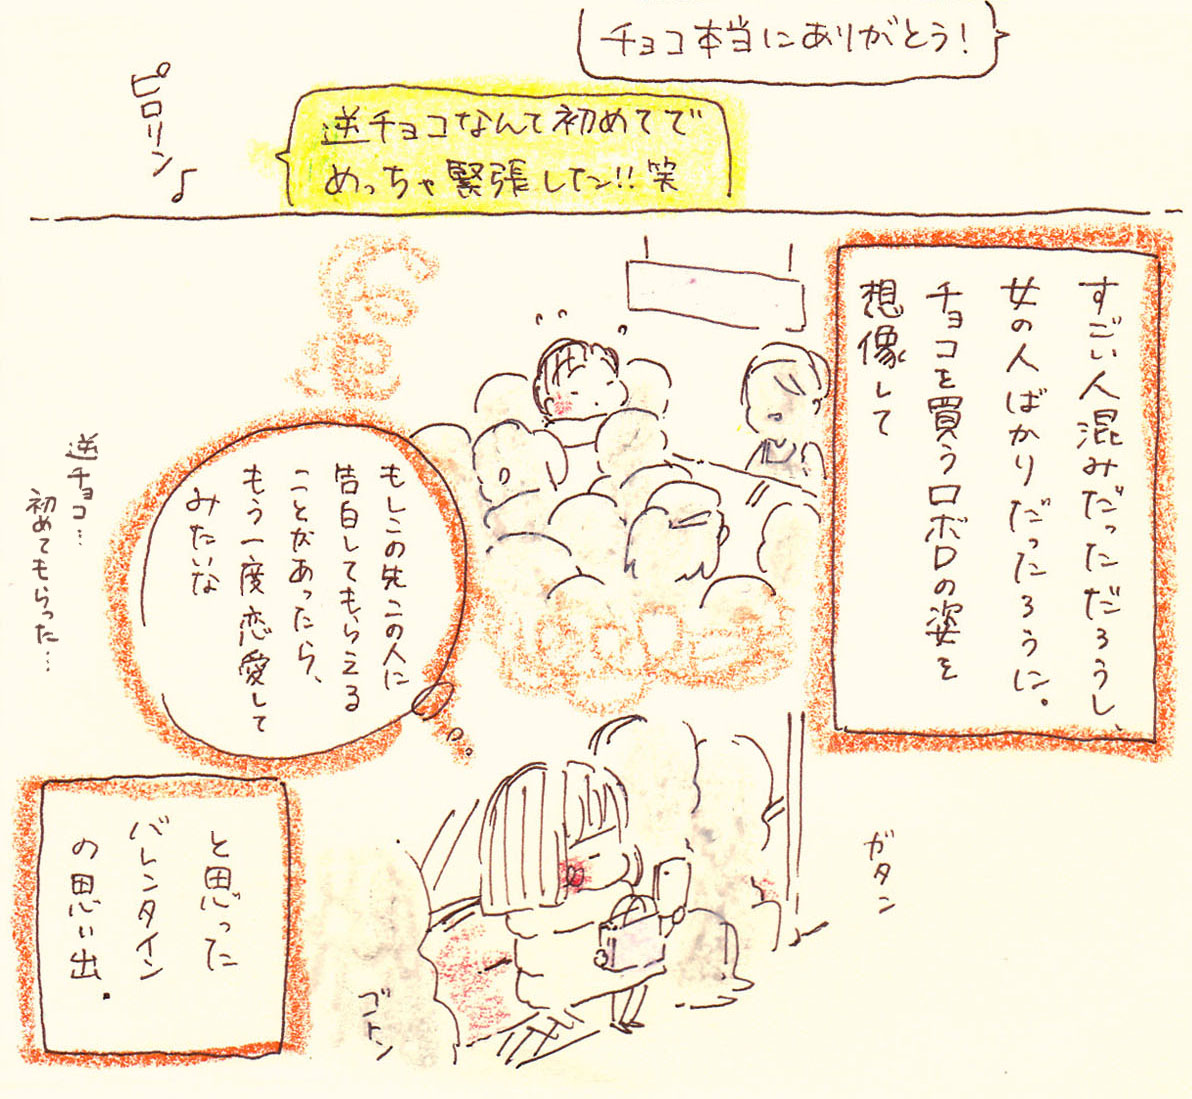 チョコ本当にありがとう!
ピロリン♪
逆チョコなんて初めてで
めっちゃ緊張したン!!笑
すごい人混みだっただろうし、
女の人ばかりだったろうに。
チョコを買うロボロの姿を
想像して
もしこの先この人に
告白してもらえる
ことがあったら、
もう一度恋愛して
みたいな
逆チョコ…
初めてもらった…
ガタン
ゴトン
と思った
バレンタイン
の思い出.